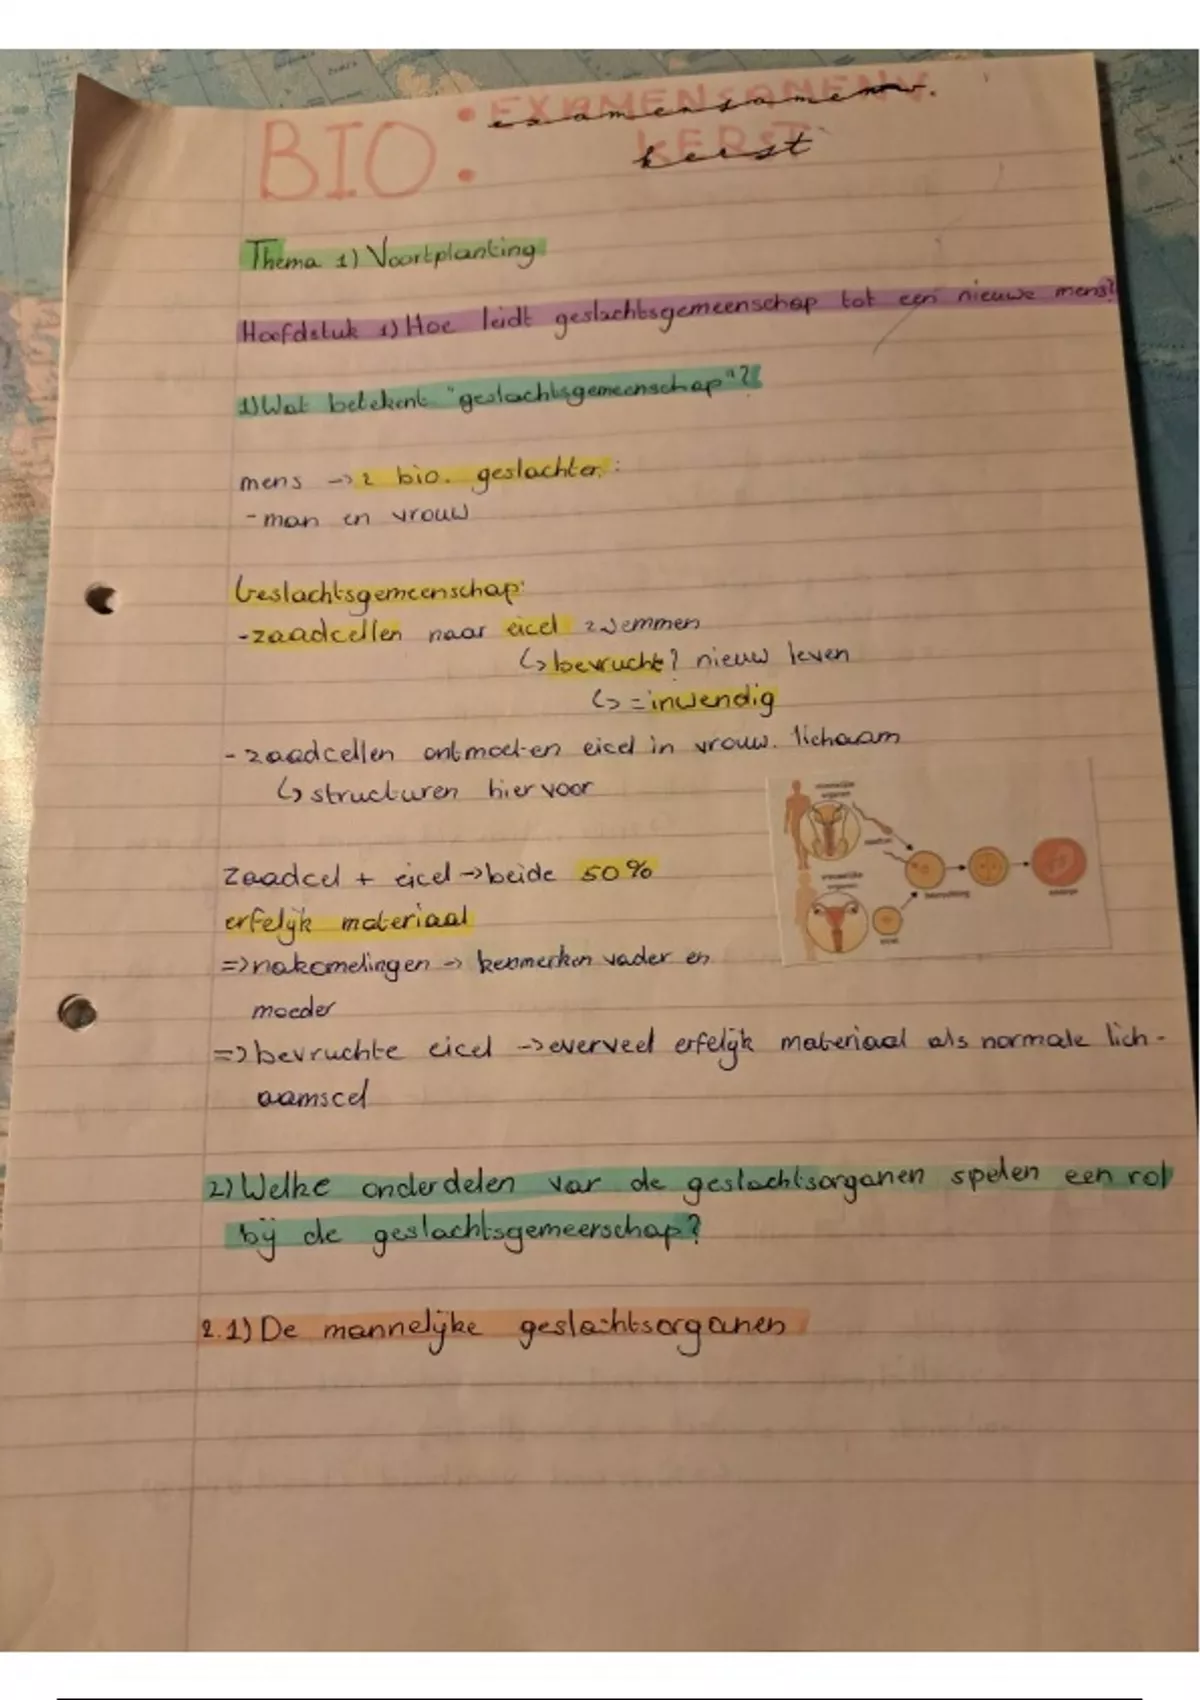 BIO: EXAMENSAMENV.
examensamenv.
KERST
kerst
Thema 1) Voortplanting
Hoofdstuk 1) Hoe leidt geslachtsgemeenschap tot een nieuwe mens?
1) Wat betekent "geslachtsgemeenschap"?
mens -> 2 bio. geslachten:
- man en vrouw
Geslachtsgemeenschap:
- zaadcellen naar eicel zwemmen
↳ bevrucht? nieuw leven
↳ = inwendig
- zaadcellen ontmoeten eicel in vrouw. lichaam
↳ structuren hiervoor
mannelijke organen
zaadcel
bevruchting
embryo
vrouwelijke organen
eicel
Zaadcel + eicel -> beide 50%
erfelijk materiaal
=> nakomelingen -> kenmerken vader en
moeder
=> bevruchte eicel -> evenveel erfelijk materiaal als normale lich-
aamscel
2) Welke onderdelen van de geslachtsorganen spelen een rol
bij de geslachtsgemeenschap?
2.1) De mannelijke geslachtsorganen